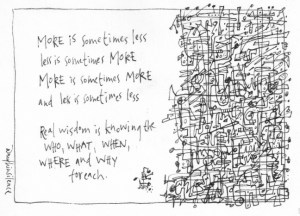 MORE is sometimes less
less is sometimes MORE
MORE is sometimes MORE
and less is sometimes less
Real wisdom is knowing the
WHO, WHAT, WHEN,
WHERE and WHY
for each.